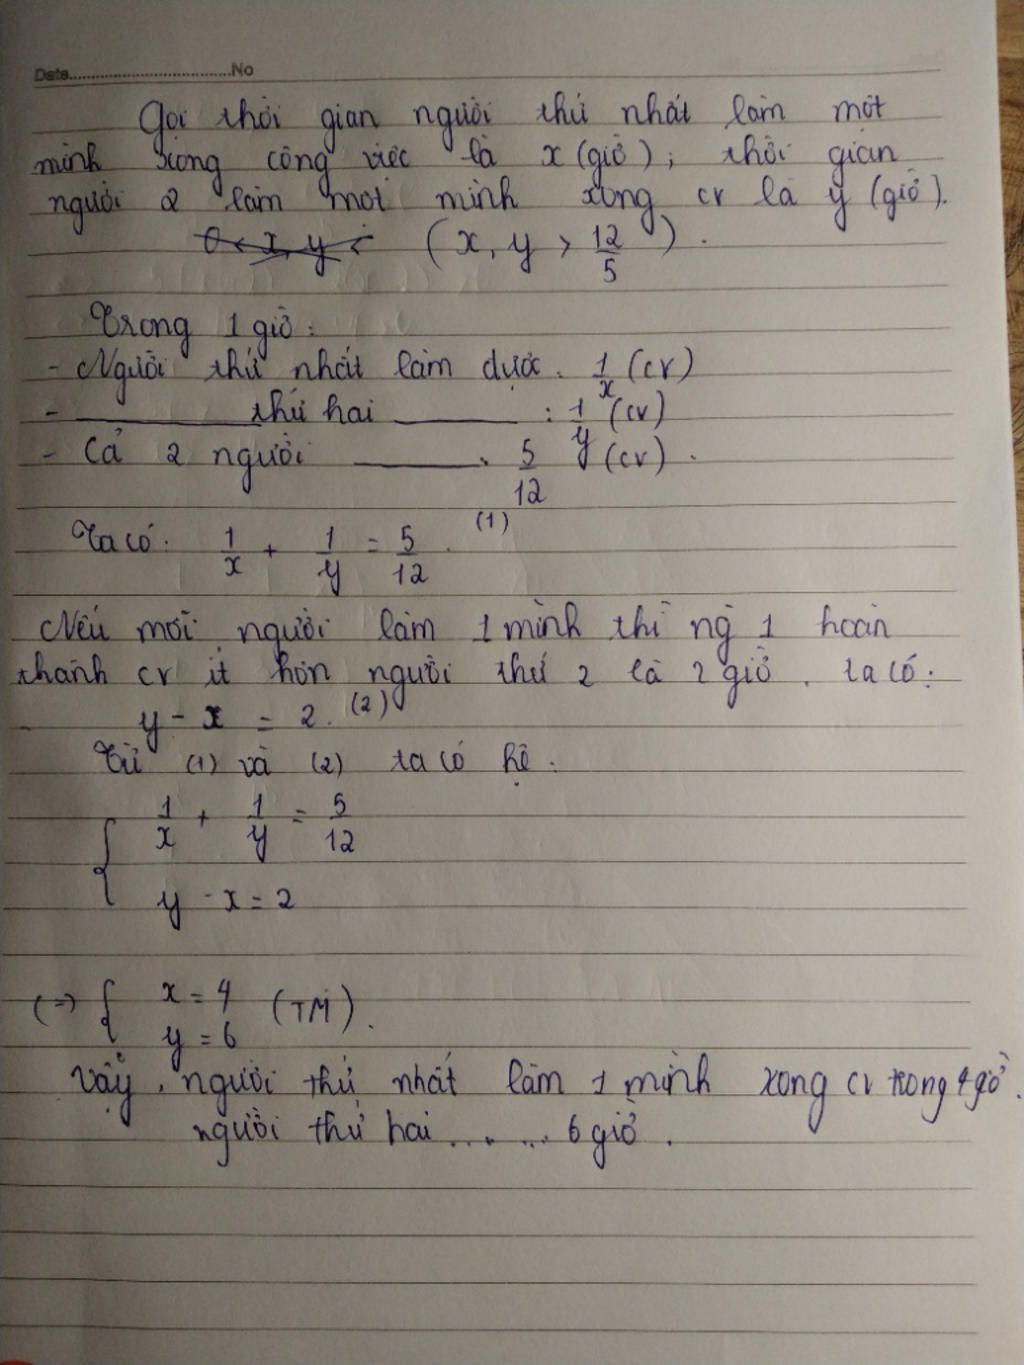 Date...............................No
Gọi thời gian người thứ nhất làm một
mình xong công việc là x (giờ); thời gian
người 2 làm một mình xong cv là y (giờ).
0 < x, y < (x, y > 12/5).
Trong 1 giờ:
- Người thứ nhất làm được. 1/x (cv)
- ________ thứ hai ______ : 1/y (cv)
- Cả 2 người ______. 5/12 (cv).
Ta có: 1/x + 1/y = 5/12. (1)
Nếu mỗi người làm 1 mình thì ng 1 hoàn
thành cv ít hơn người thứ 2 là 2 giờ. ta có:
y - x = 2. (2)
Từ (1) và (2) ta có hệ:
{ 1/x + 1/y = 5/12
y - x = 2
(=) { x = 4 (TM).
y = 6
Vậy, người thứ nhất làm 1 mình xong cv trong 4 giờ.
người thứ hai ... ... 6 giờ.